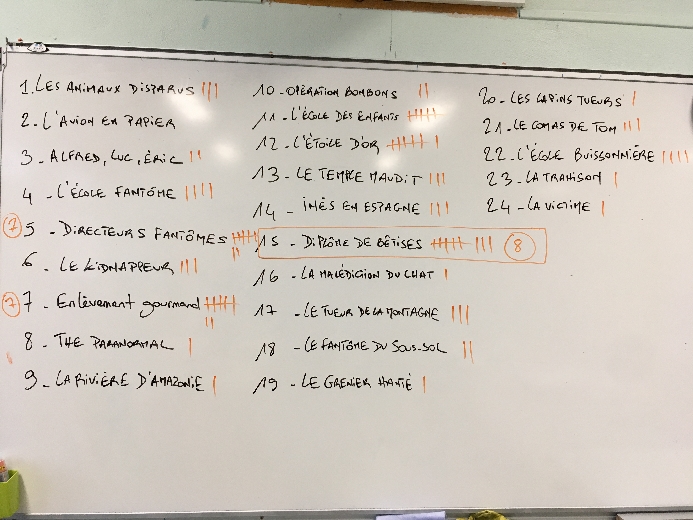 1. LES ANIMAUX DISPARUS |||
2. L'AVION EN PAPIER
3 - ALFRED, LUC, ÉRIC ||
4 - L'ÉCOLE FANTÔME ||||
7 5 - DIRECTEURS FANTÔMES |||| ||
6 - LE KIDNAPPEUR |||
7 7 - Enlèvement gourmand |||| ||
8 - THE PARANORMAL |
9 - LA RIVIÈRE D'AMAZONIE |
10 - OPÉRATION BONBONS ||
11 - L'ÉCOLE DES ENFANTS ||||
12 - L'ÉTOILE D'OR |||| |
13 - LE TEMPLE MAUDIT |||
14 - INÈS EN ESPAGNE |||
15 - DIPLÔME DE BÊTISES |||| ||| 8
16 - LA MALÉDICTION DU CHAT |
17 - LE TUEUR DE LA MONTAGNE |||
18 - LE FANTÔME DU SOUS-SOL ||
19 - LE GRENIER HANTÉ |
20 - LES LAPINS TUEURS |
21 - LE COMAS DE TOM |||
22 - L'ÉCOLE BUISSONNIÈRE ||||
23 - LA TRAHISON |
24 - LA VICTIME |